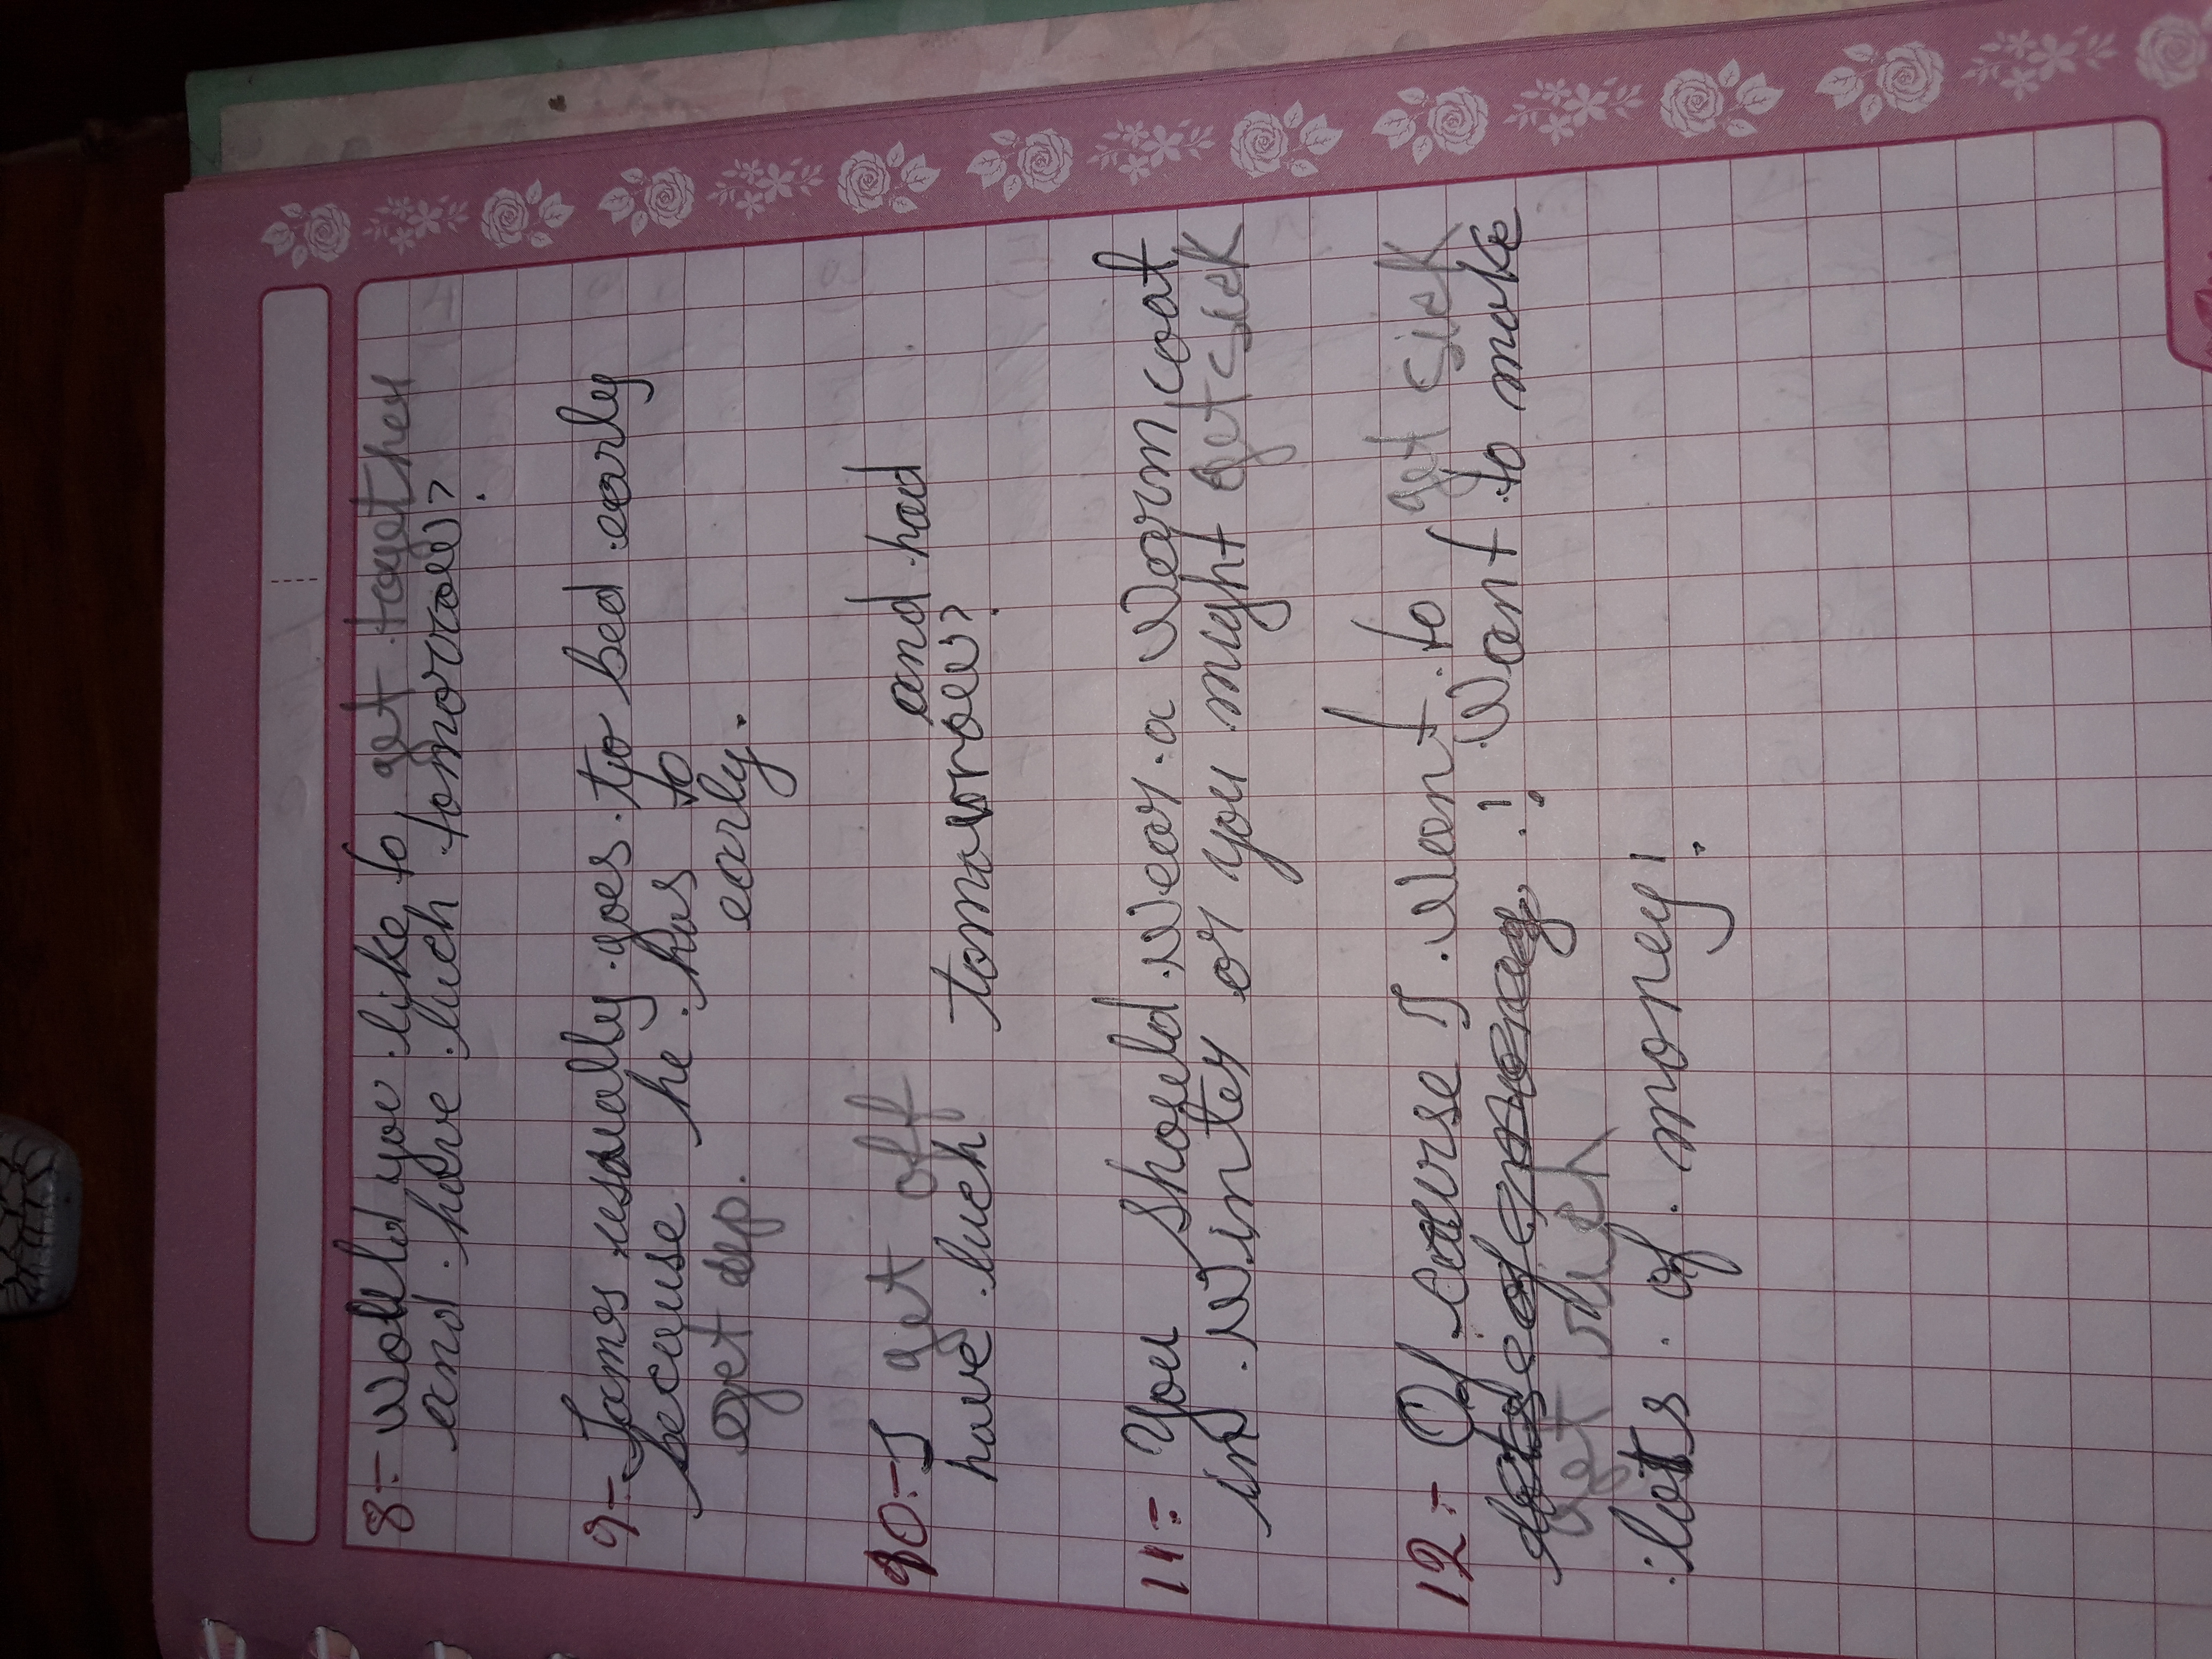 8:- Would you like to get together
and have luch tomorrow?
9:- James usually goes to bed early
because he has to
get up. early.
10:- I get off and had
have luch tomorrow?
11:- You should wear a warm coat
in winter or you might get sick
12:- Of course I want to get sick
! Want to make
get sick
lots of money!